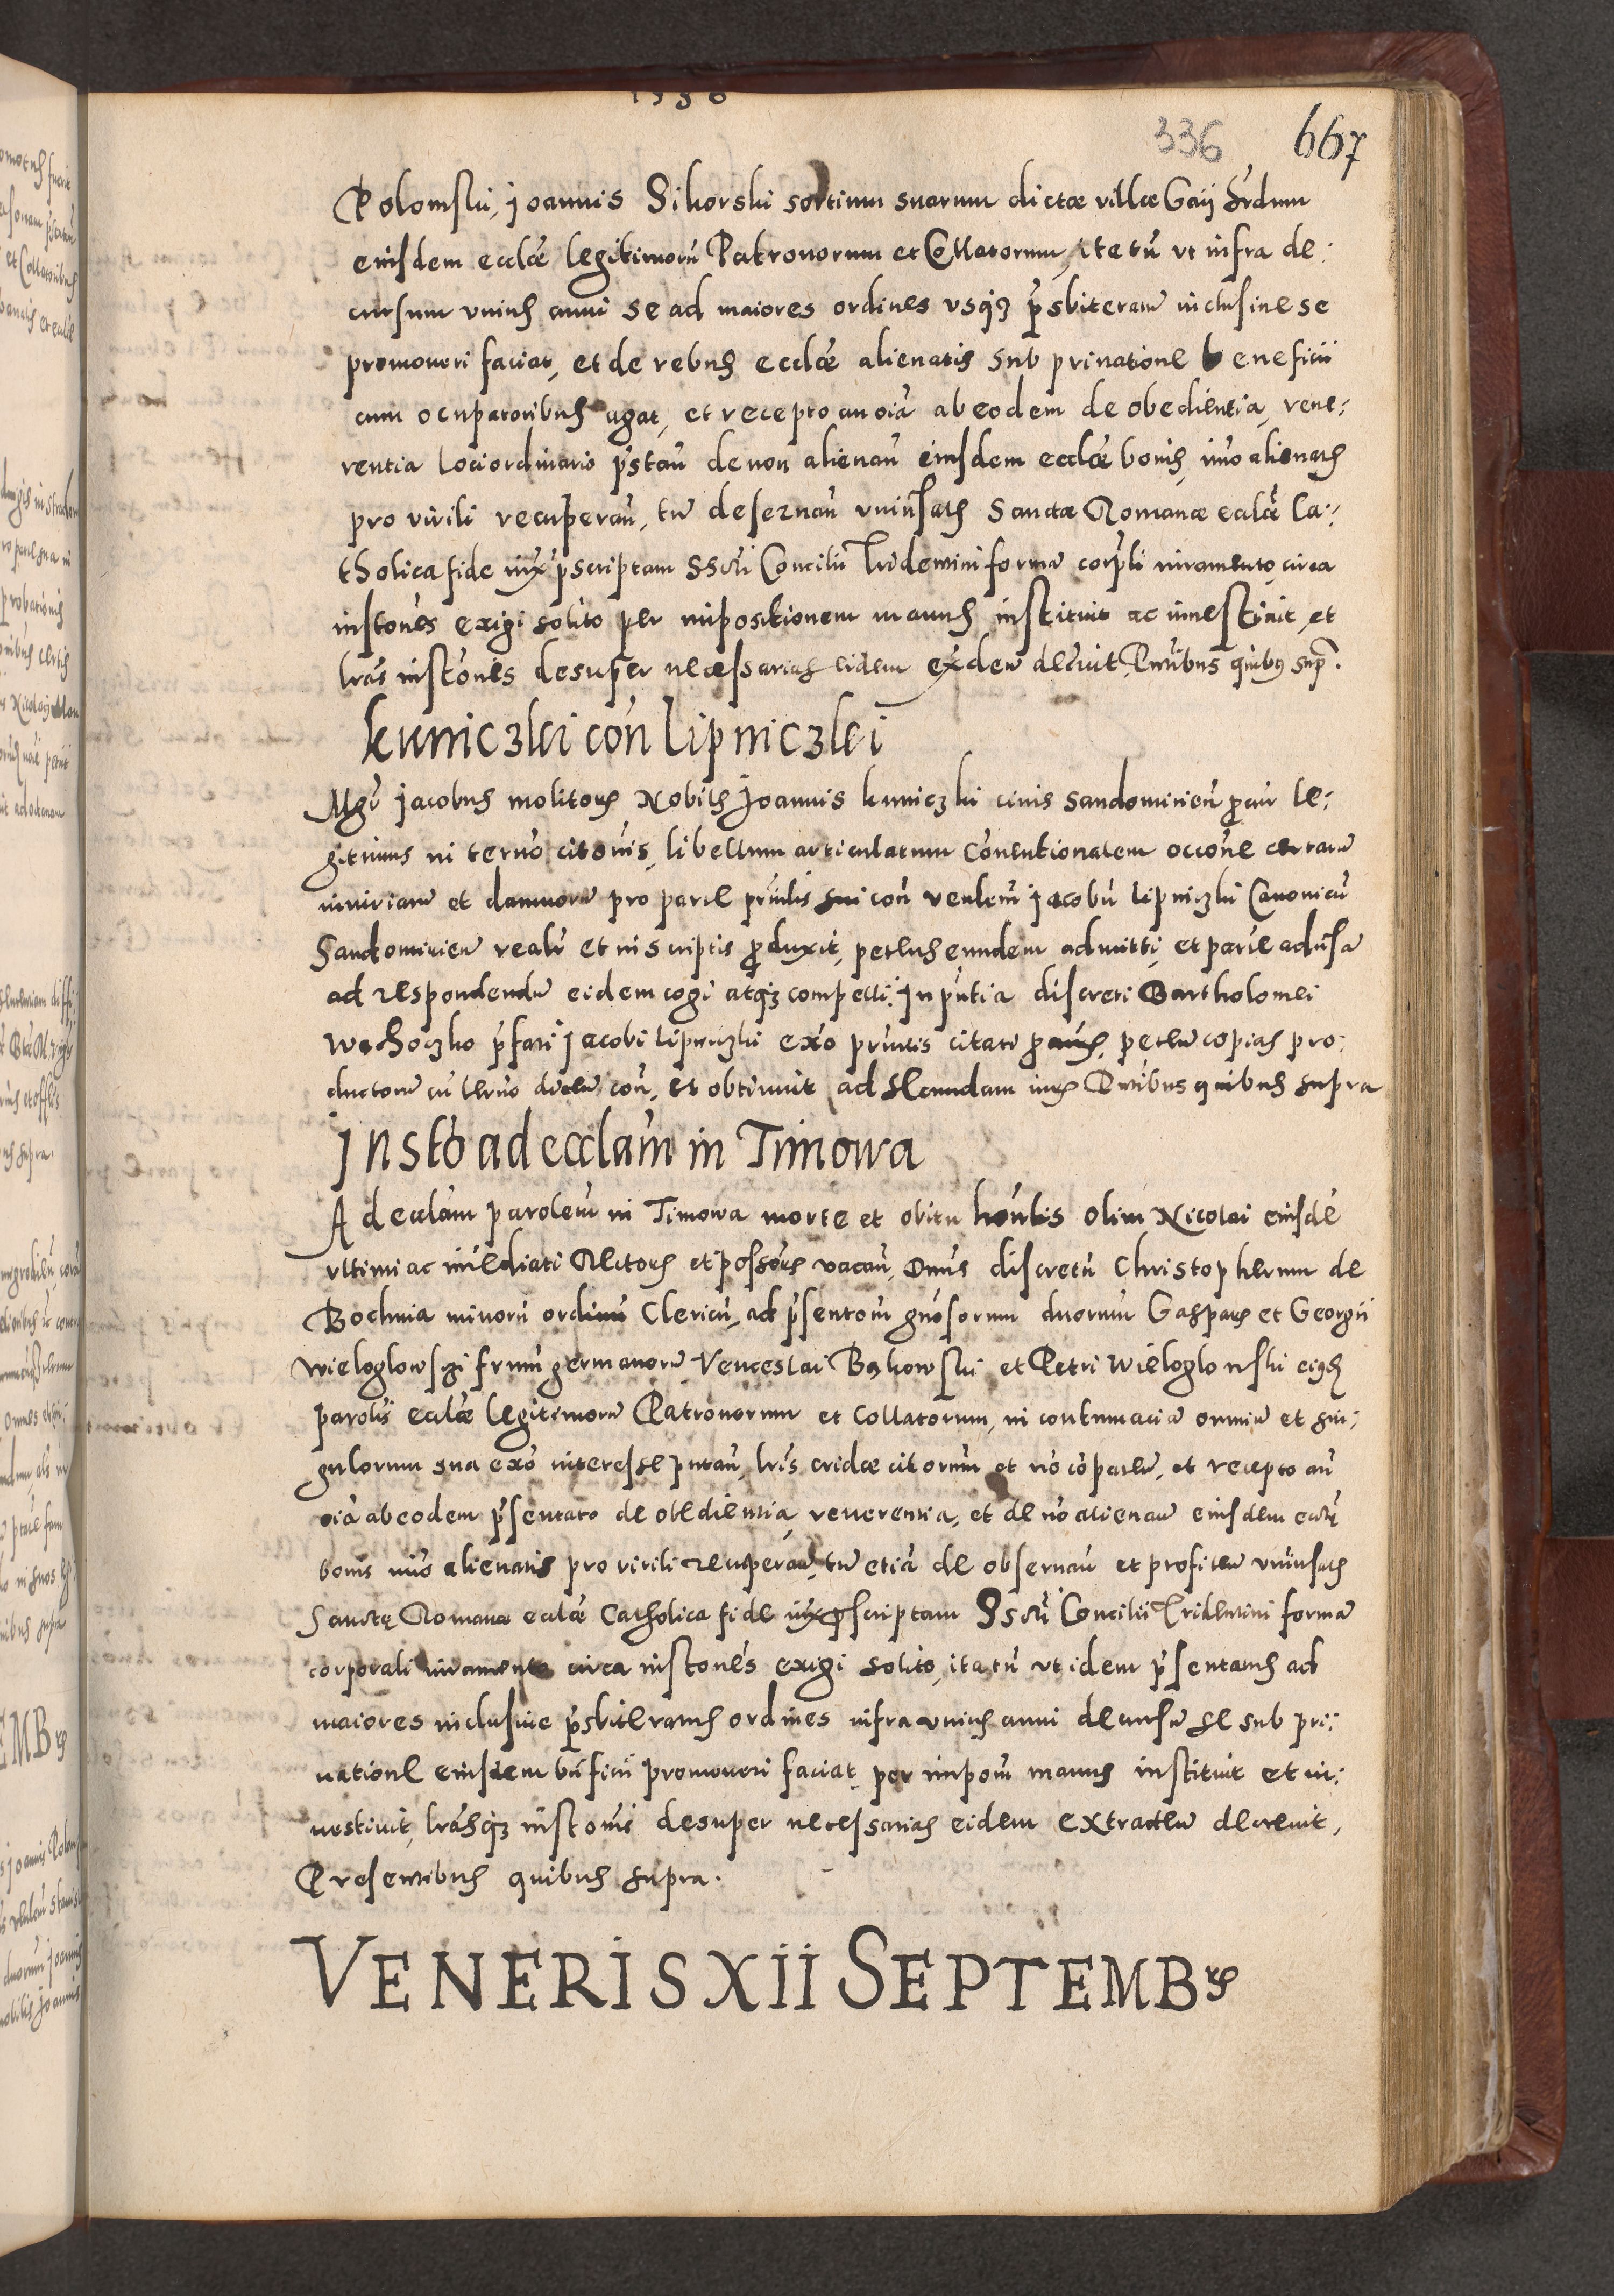 336 667
Polomski, Joannis Sikorski sortium suarum dictæ villæ Gaÿ hrdum
eiusdem ecclæ legitimorū Patronorum et Collatorum, ita tn̄ vt infra de:
cursum vnius anni se ad maiores ordines vsqȝ p̄sbiteratū inclusiue se
promoueri faciat, et de rebus ecclæ alienatis sub priuatione beneficii
cum ocupatoribus agat, et recepto an oīa ab eodem de obedientia, reue:
rentia loci ordinario p̄stan̄ de non alienan̄ eiusdem ecclæ bonis, imo alienatis
pro virili recuperan̄, tū deseruan̄ vniūsalis Sanctæ Romanæ ecclæ Ca:
tholica fide iux p̄scriptam Sscri̅ Concilii Tridentini formā corp̄li iuramento, circa
instones exigi solito per impositionem manus instituit ac inuestiuit, et
lr̄as instōnis desuper necessarias eidem exdeū decreuit Pntibus quibus sup̄.
kuniczki con̄ Lipniczki
Mgr̄ Jacobus molitoris Nobilis Joannis kuniczki ciuis Sandomirien̄ procur le:
gitimus in termō citōnis, libellum articulatum conuentionalem occōne certarū
iniuriarū et damnorū pro parte prn̄lis sui con̄ venlem Jacobū Lipniczki Canonicū
Sandomirien̄ realr̄ et in scriptis produxit, petens eundem admitti, et parte aduersā
ad respondendū eidem cogi atqȝ compelli. In pn̄tia discreti Bartholomei
Wachoczko p̄fati Jacobi Lipniczki exō prn̄tis citati procuris, petēn copias pro:
ductorū cū termō dicēn con̄, et obtinuit ad secundam iurs Pntibus quibus supra
Instō ad ecclam in Timowa
Ad ecclam parolem in Timowa morte et obitu honlis olim Nicolai eiusdē
vltimi ac imediati Rectoris et possōris vacan̄, Dnūs discretū Christopherum de
Bochnia minorū ordinū Clericū, ad p̄sentom gnōsorum duorum Gasparis et Georgii
Wieloglowski frum germanorū Venceslai Bakowski et Petri Wieloglowski eius
parolis ecclæ legitimorū Patronorum et collatorum, in contumaciā omniū et sin:
gulorum sua exō interesse putan̄, lr̄is cridæ citorum et nō cōparen̄, et recepto an
oīa ab eodem p̄sentato de obedientia, reuerentia, et de nō alienan̄ eiusdem ecclę
bonis imo alienatis pro virili recuperan̄, tū etiā de obseruan̄ et profiten̄ vniuersalis
Sanctę Romanæ ecclæ Catholica fide iux p̄scriptam Sscri̅ Concilii Tridentini formā
corporali iuramento circa instonēs exigi solito, ita tn̄ vt idem p̄sentatus ad
maiores inclusiue p̄sbiteratus ordines infra vnius anni decursū se sub pri:
uatione eiusdem bn̄ficii promoueri faciat, per impom̄ manus instituit et in:
uestiuit, lr̄asqȝ instonis desuper necessarias eidem extradeū decreuit,
Presentibus quibus supra.
VENERIS XII SEPTEMBris